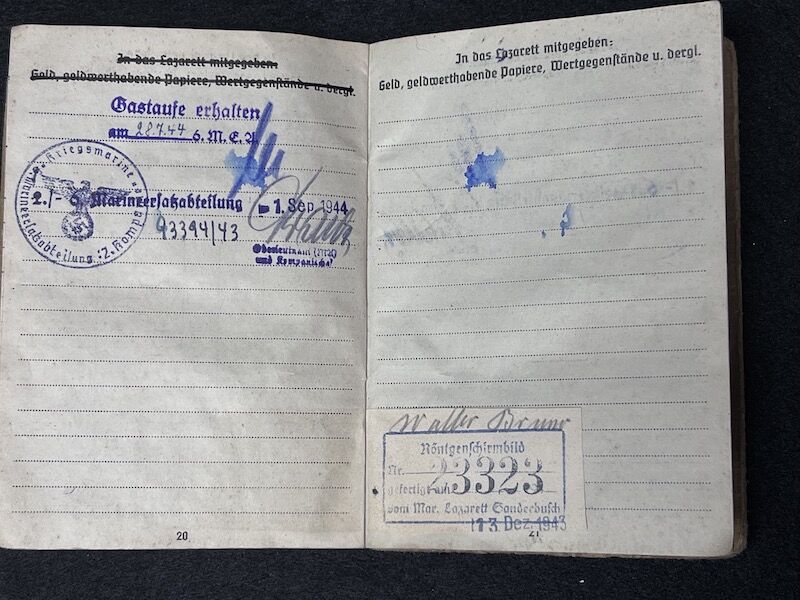 In das Lazarett mitgegeben:
Geld, geldwerthabende Papiere, Wertgegenstände u. dergl.
Gastaufe erhalten
am 28.7.44 6. M.E.A.
Kriegsmarine
Marineersatzabteilung
2. Komp.
2./- 6. Marineersatzabteilung - 1. Sep. 1944
43394/43
Oberleutnant (MA)
und Kompaniechef
20
In das Lazarett mitgegeben:
Geld, geldwerthabende Papiere, Wertgegenstände u. dergl.
Walter Bruno
Röntgenschirmbild
Nr. 23323
gefertigt am
vom Mar. Lazarett Sanderbusch
13. Dez. 1943
21